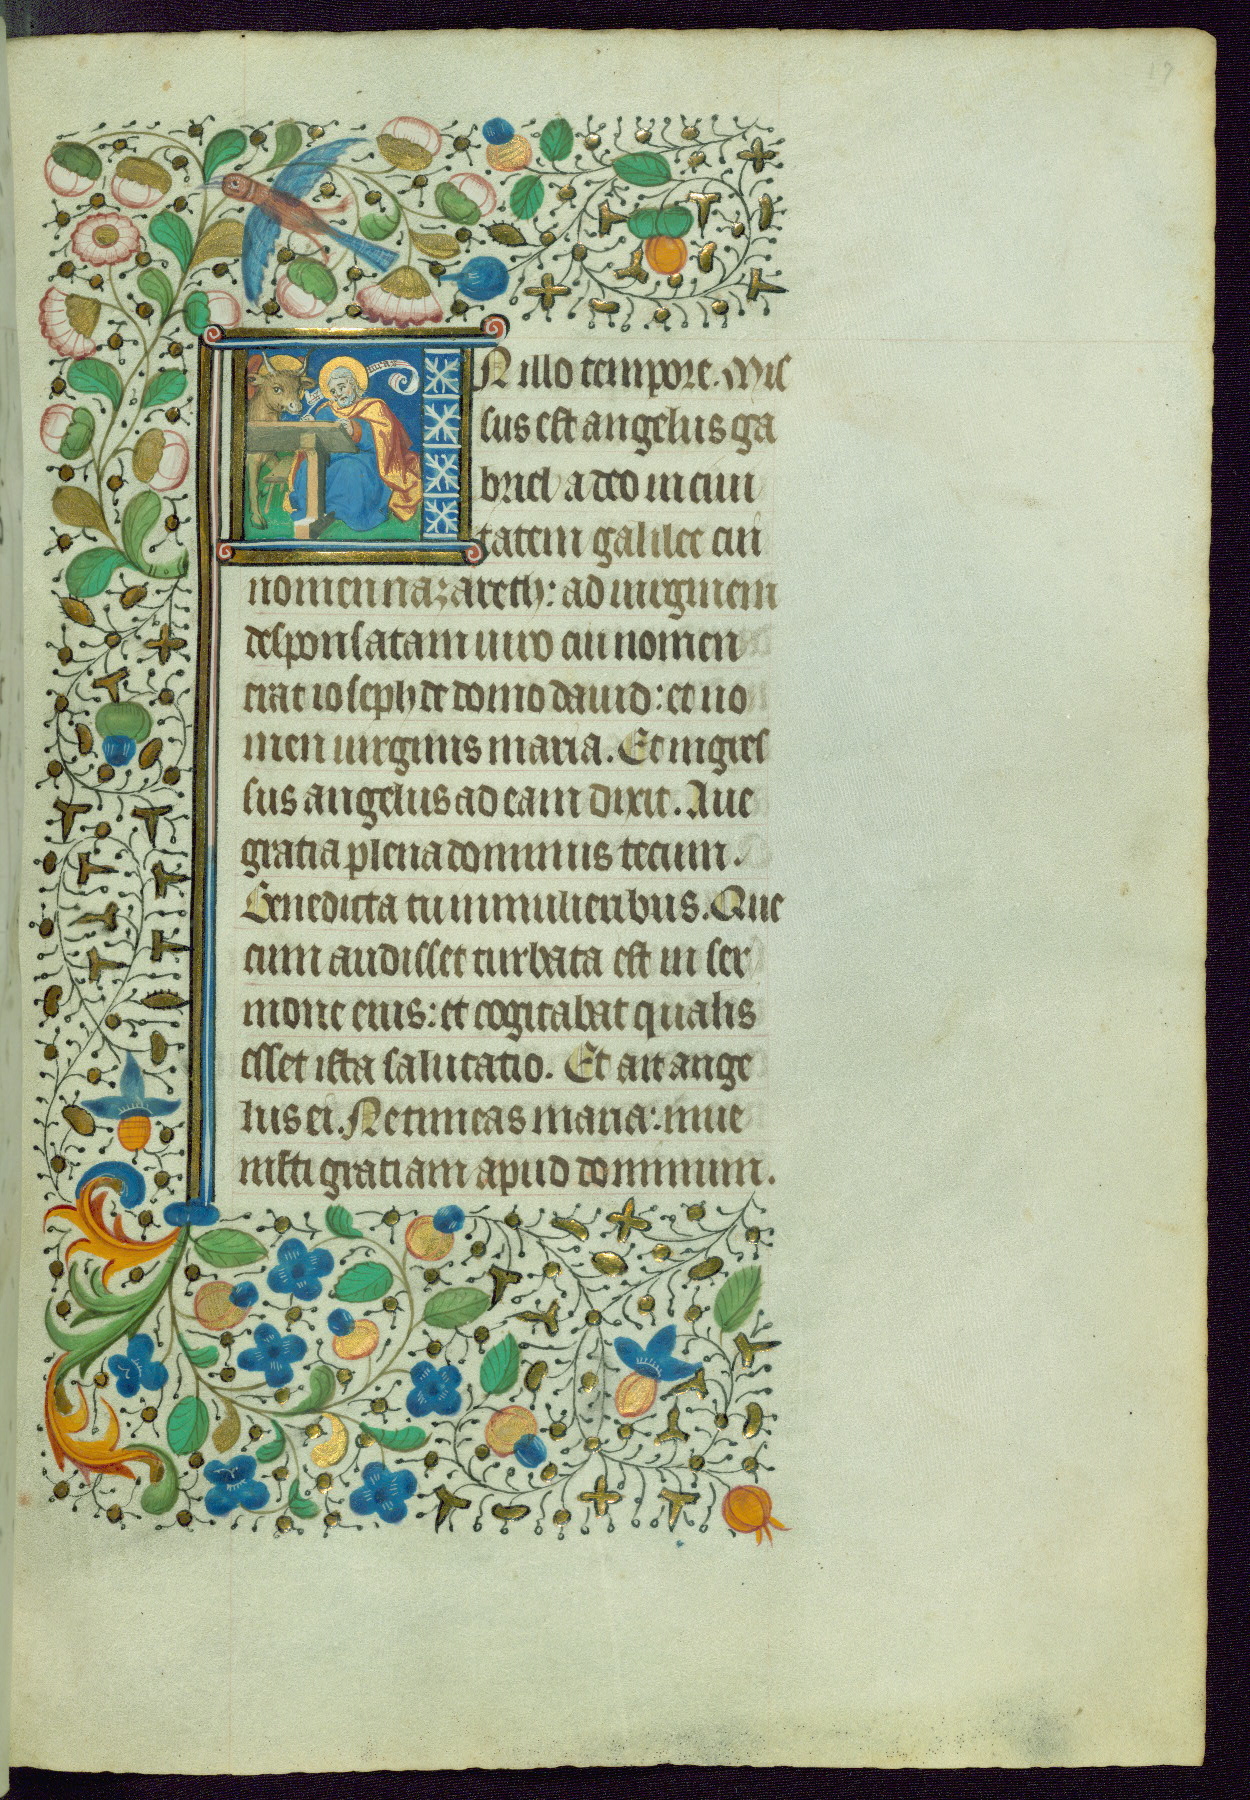 17
IN illo tempore. Mis
sus est angelus ga
briel a deo in ciui
tatem galilee cui
nomen nazareth: ad uirginem
desponsatam uiro cui nomen
erat ioseph de domo dauid: et no
men uirginis maria. Et ingres
sus angelus ad eam dixit. Aue
gratia plena dominus tecum.
Benedicta tu in mulieribus. Que
cum audisset turbata est in ser
mone eius: et cogitabat qualis
esset ista salutatio. Et ait ange
lus ei. Ne timeas maria: inue
nisti gratiam apud dominum.